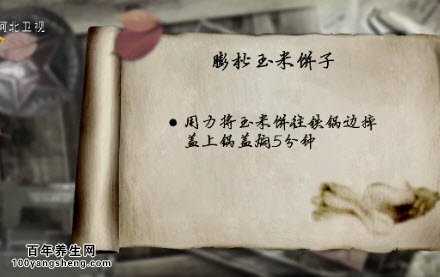 河北卫视
膨松玉米饼子
● 用力将玉米饼往铁锅边摔
盖上锅盖焖5分钟
百年养生网
100yangsheng.com